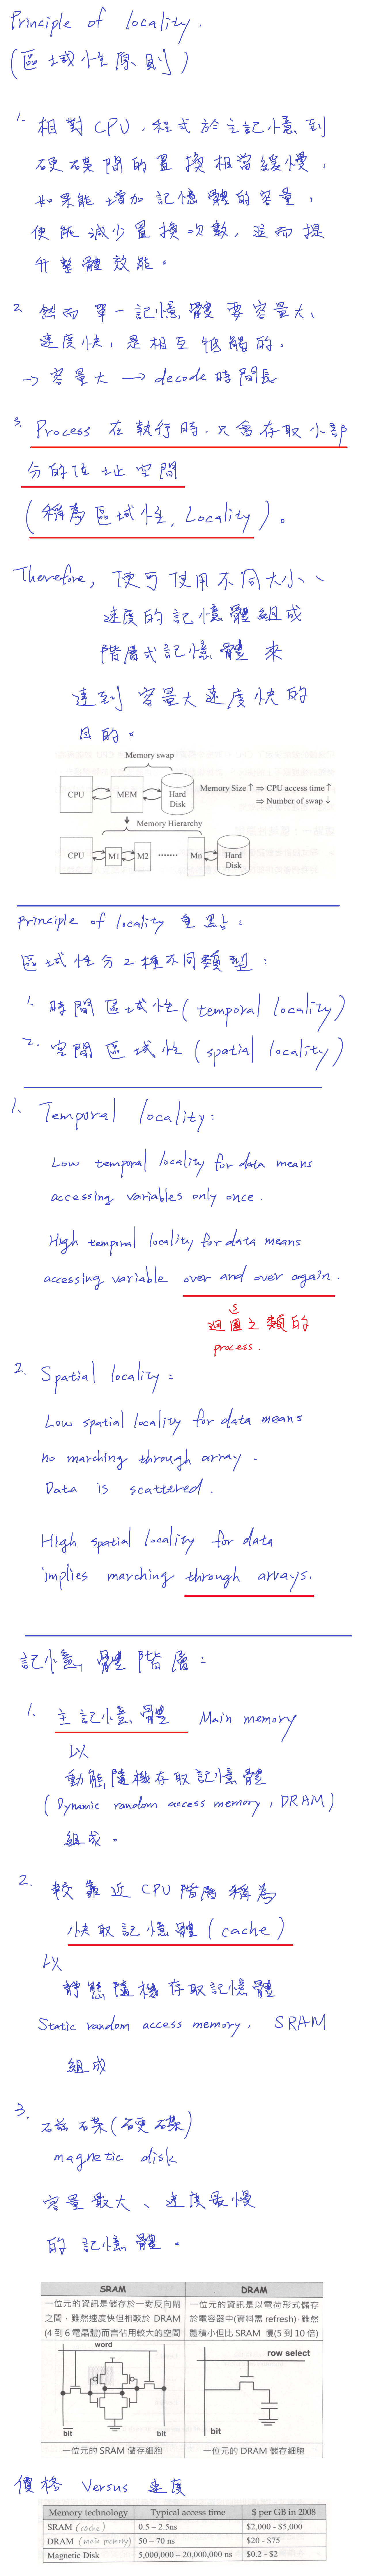 Principle of locality.
(區域性原則)
1. 相對CPU,程式於主記憶到
硬碟間的置換相當緩慢,
如果能增加記憶體的容量,
便能減少置換次數,進而提
升整體效能。
2. 然而單一記憶體要容量大、
速度快,是相互牴觸的,
→ 容量大 → decode時間長
3. Process 在執行時,只會存取小部
分的位址空間
(稱為區域性, Locality)。
Therefore, 便可使用不同大小、
速度的記憶體組成
階層式記憶體 來
達到 容量大速度快的
目的。
Memory swap
CPU MEM Hard Disk
Memory Size ↑ ⇒ CPU access time ↑
⇒ Number of swap ↓
Memory Hierarchy
CPU M1 M2 ······· Mn Hard Disk
Principle of locality 重點:
區域性分2種不同類型:
1. 時間區域性(temporal locality)
2. 空間區域性(spatial locality)
1. Temporal locality:
Low temporal locality for data means
accessing variables only once.
High temporal locality for data means
accessing variable over and over again.
迴圈之類的
process.
2. Spatial locality:
Low spatial locality for data means
no marching through array.
Data is scattered.
High spatial locality for data
implies marching through arrays.
記憶體階層:
1. 主記憶體 Main memory
以
動態隨機存取記憶體
(Dynamic random access memory, DRAM)
組成。
2. 較靠近CPU階層稱為
快取記憶體(cache)
以
靜態隨機存取記憶體
Static random access memory, SRAM
組成
3. 磁碟(硬碟)
magnetic disk
容量最大、速度最慢
的記憶體。
SRAM DRAM
一位元的資訊是儲存於一對反向閘 一位元的資訊是以電荷形式儲存
之間,雖然速度快但相較於 DRAM 於電容器中(資料需 refresh),雖然
(4 到 6 電晶體)而言佔用較大的空間 體積小但比 SRAM 慢(5 到 10 倍)
word
row select
bit bit bit
一位元的 SRAM 儲存細胞 一位元的 DRAM 儲存細胞
價格 Versus 速度
Memory technology Typical access time $ per GB in 2008
SRAM (cache) 0.5 – 2.5ns $2,000 - $5,000
DRAM (main memory) 50 – 70 ns $20 - $75
Magnetic Disk 5,000,000 – 20,000,000 ns $0.2 - $2